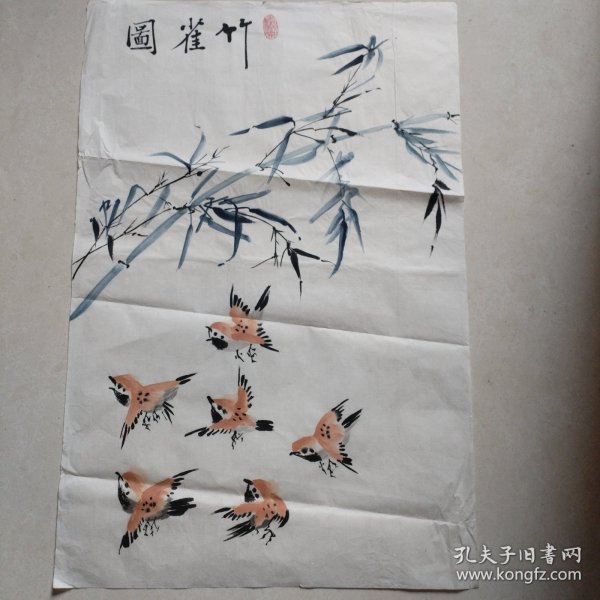 竹雀圖
孔夫子旧书网
www.kongfz.com